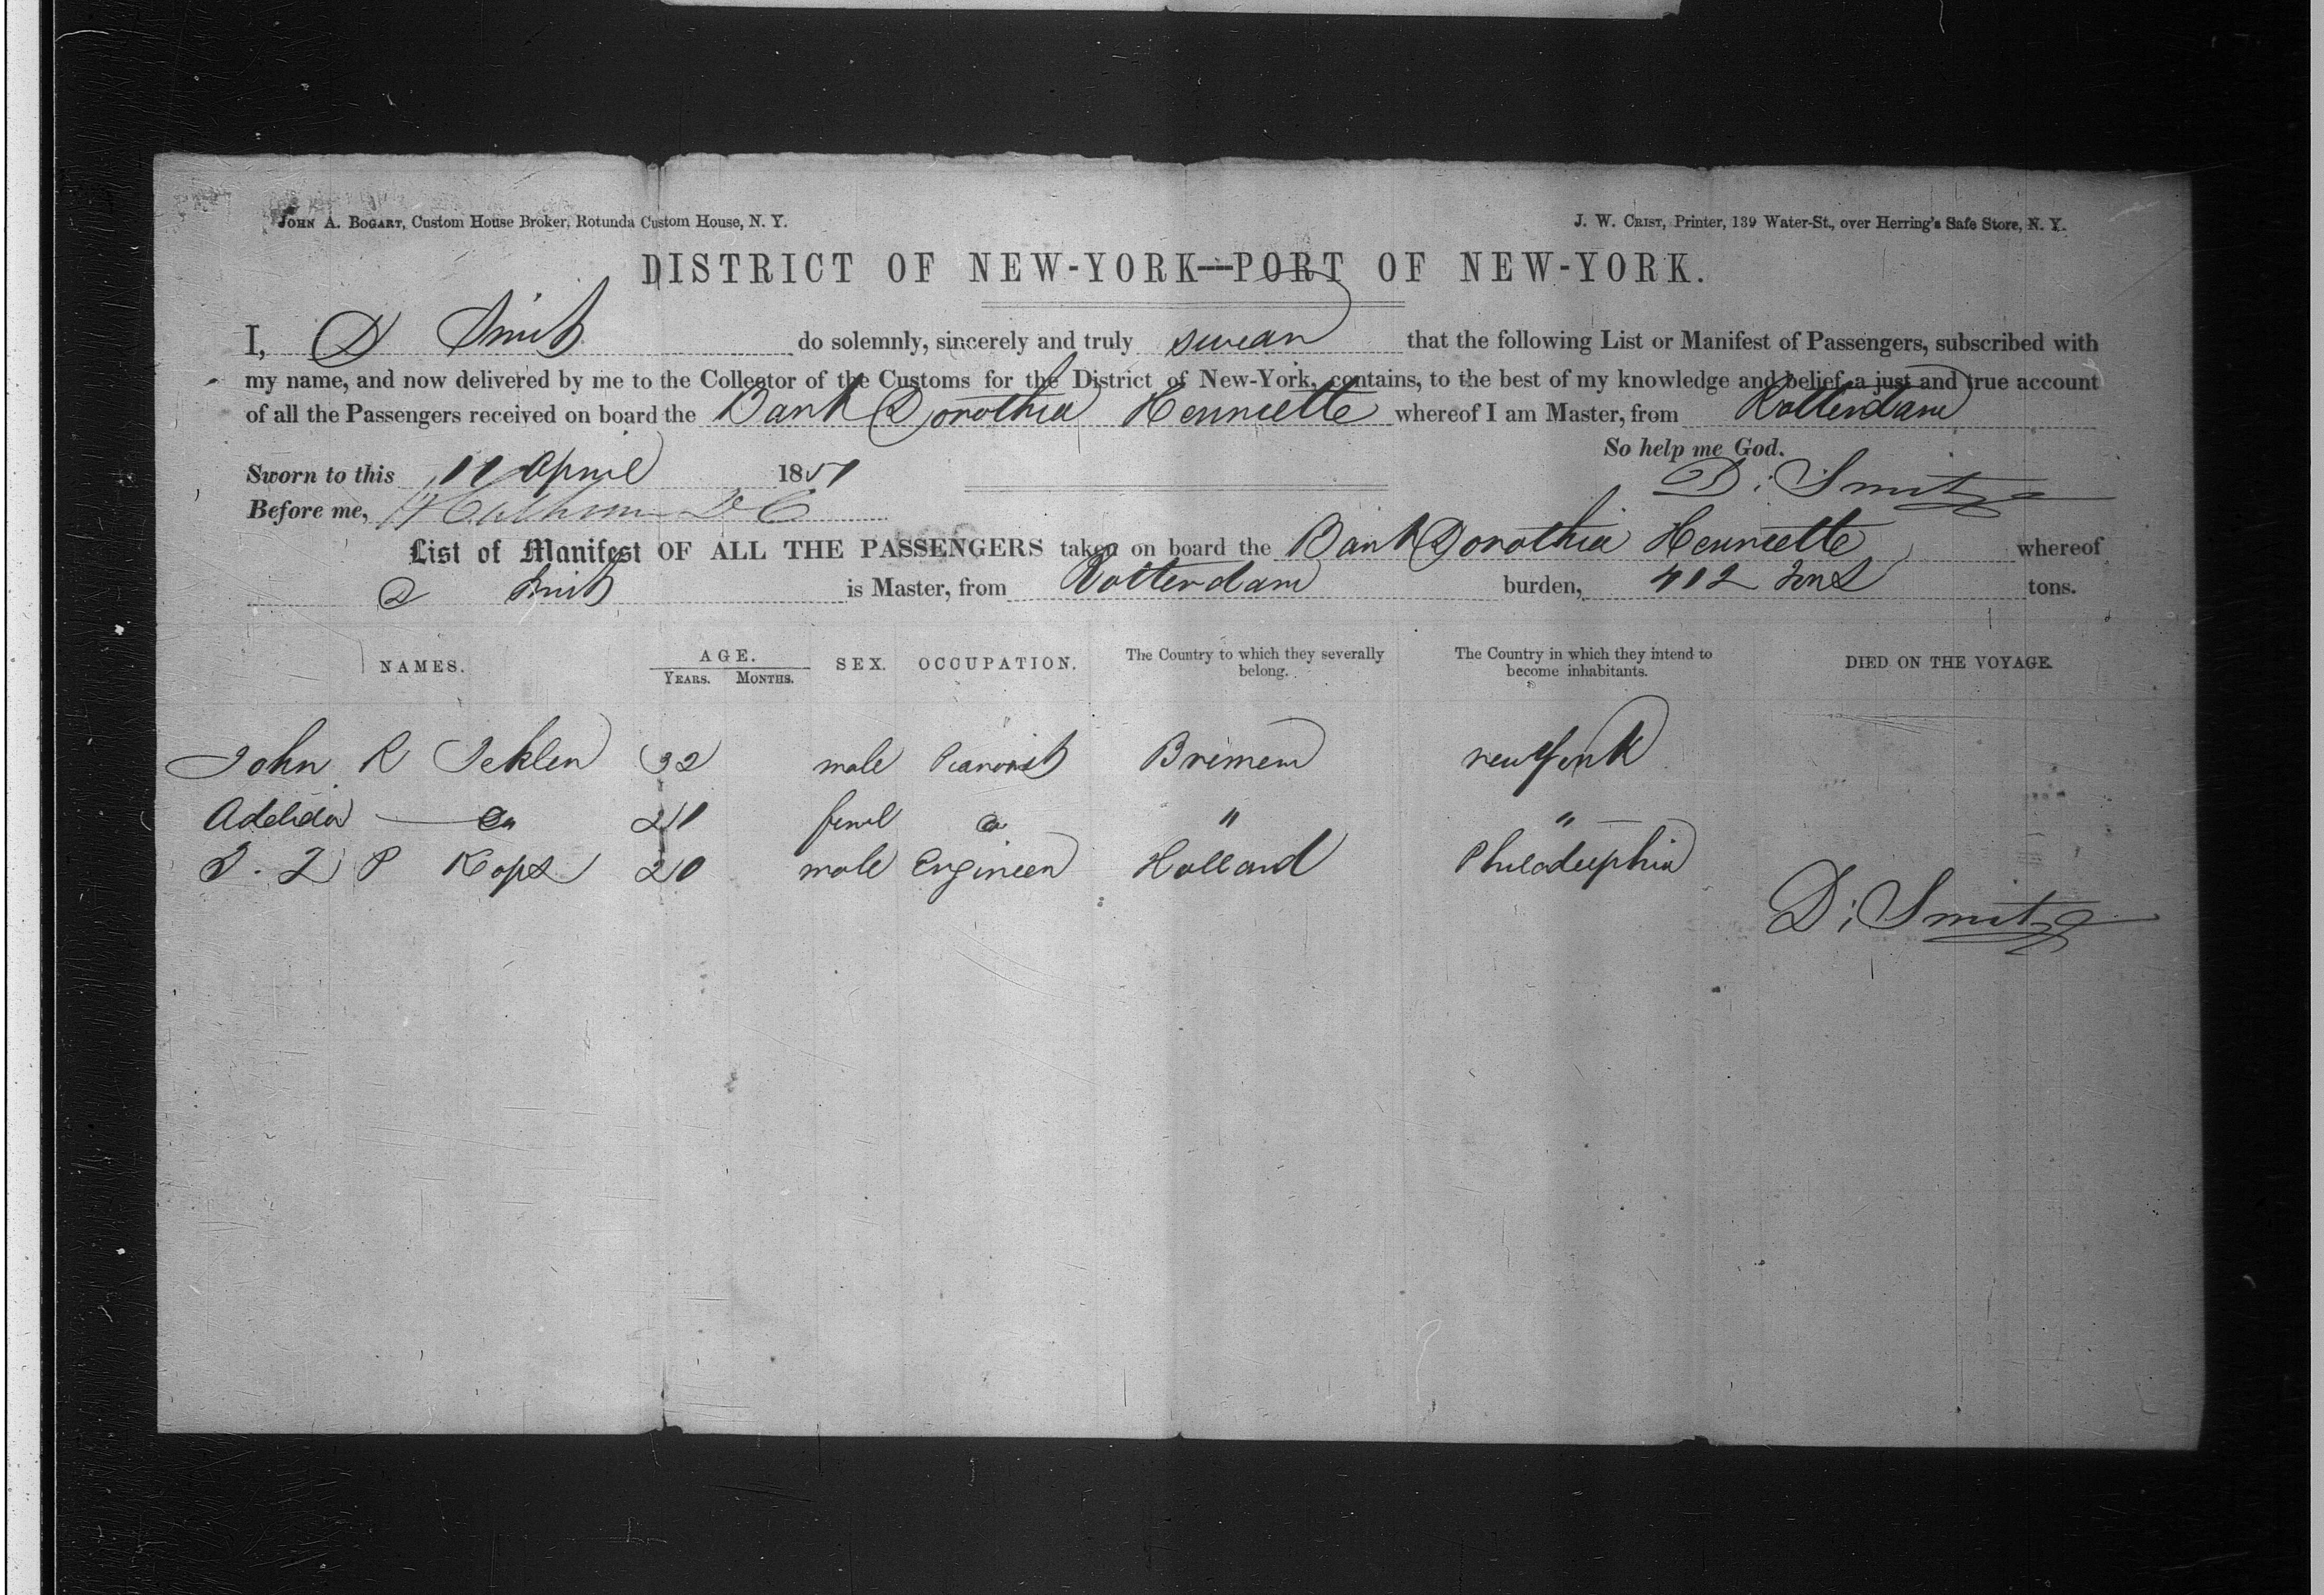 JOHN A. BOGART, Custom House Broker, Rotunda Custom House, N. Y.
J. W. CRIST, Printer, 139 Water-St., over Herring's Safe Store, N. Y.
DISTRICT OF NEW-YORK—PORT OF NEW-YORK.
I, D Smit do solemnly, sincerely and truly swear that the following List or Manifest of Passengers, subscribed with
my name, and now delivered by me to the Collector of the Customs for the District of New-York, contains, to the best of my knowledge and belief, a just and true account
of all the Passengers received on board the Bark Dorothia Henriette whereof I am Master, from Rotterdam
So help me God.
Sworn to this 11 April 1851
D. Smit
Before me,
List of Manifest OF ALL THE PASSENGERS taken on board the Bark Dorothia Henriette whereof
D Smit is Master, from Rotterdam burden, 412 tons tons.
NAMES. AGE. SEX. OCCUPATION. The Country to which they severally belong. The Country in which they intend to become inhabitants. DIED ON THE VOYAGE.
YEARS. MONTHS.
John R 32 male Pianoist Bremen new York
21 feml " "
P Kops 20 male Engineer Holland Philadelphia
D. Smit